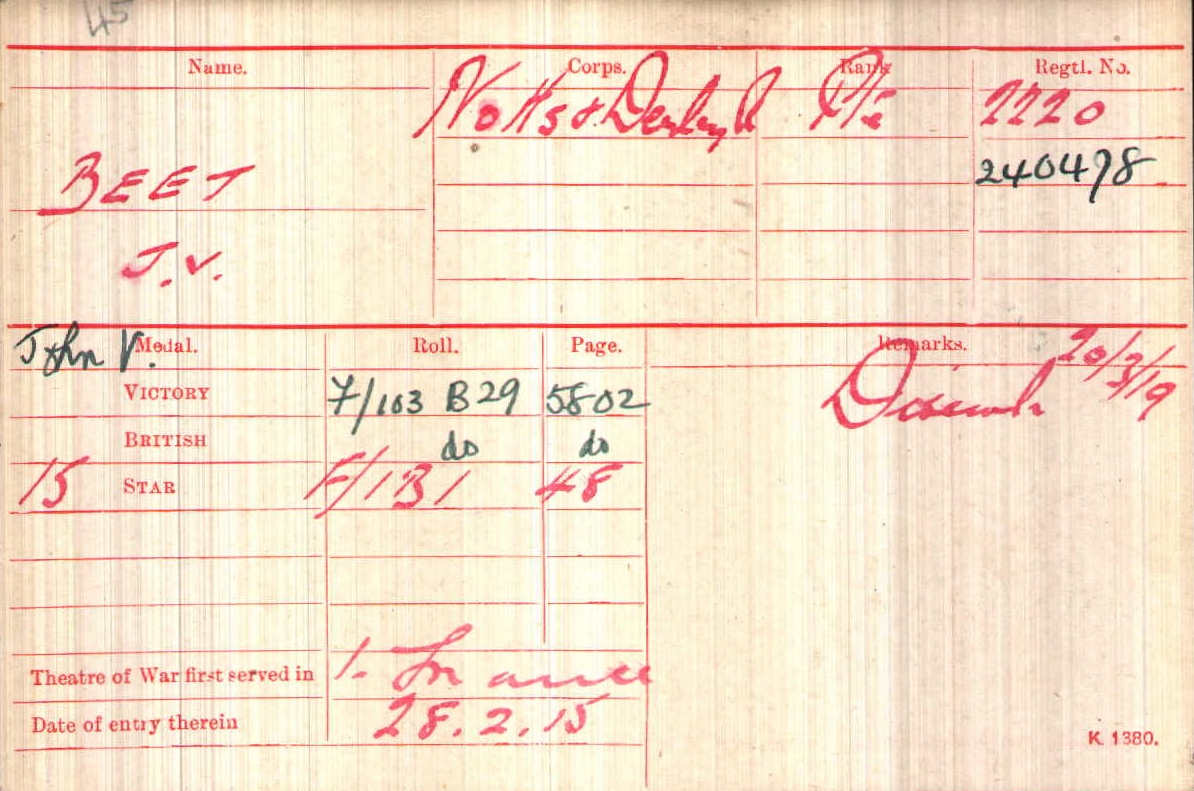 45
Name. Corps. Rank Regtl. No.
Notts & Derby R Pte 2220
BEET 240478
J.V.
John V.
Medal. Roll. Page. Remarks.
VICTORY 7/103 B29 5802 Disemb 20/3/19
BRITISH do do
15 STAR F/1B1 48
Theatre of War first served in 1. France
Date of entry therein 28.2.15
K 1380.